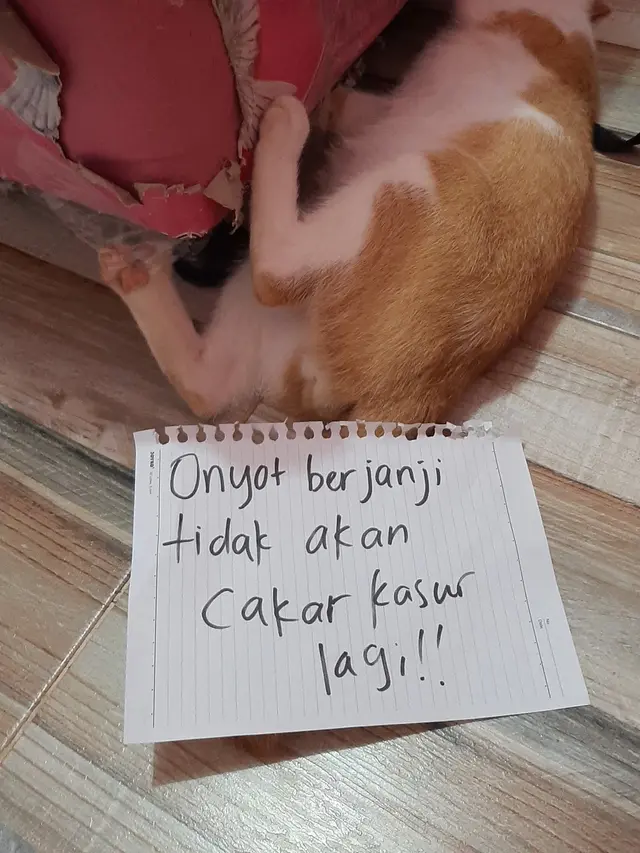 Onyot berjanji
tidak akan
Cakar kasur
lagi!!